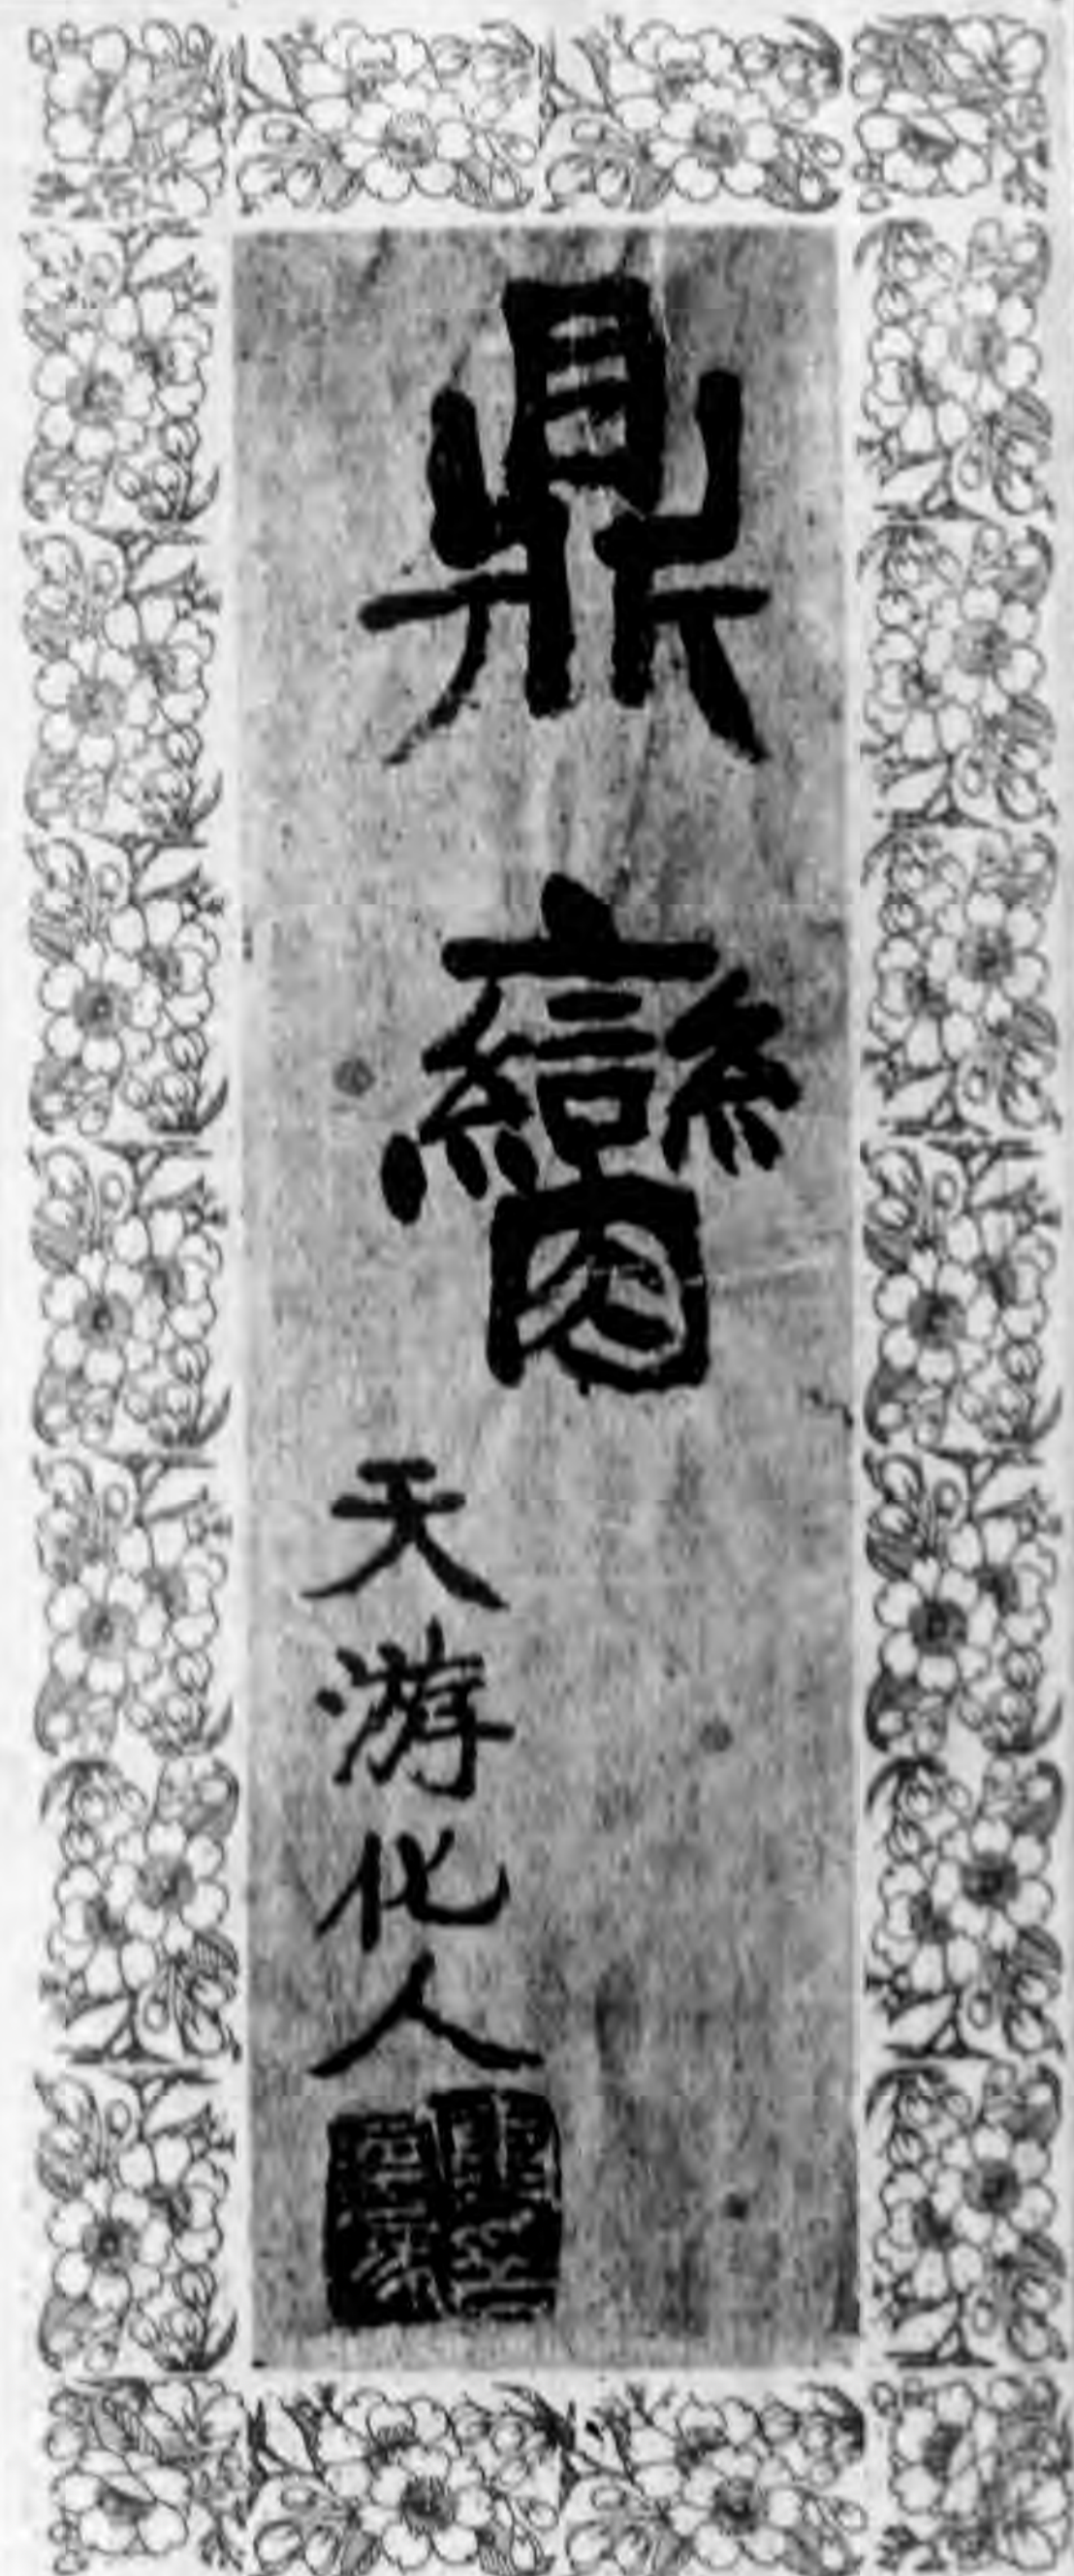 鼎臠
天游化人